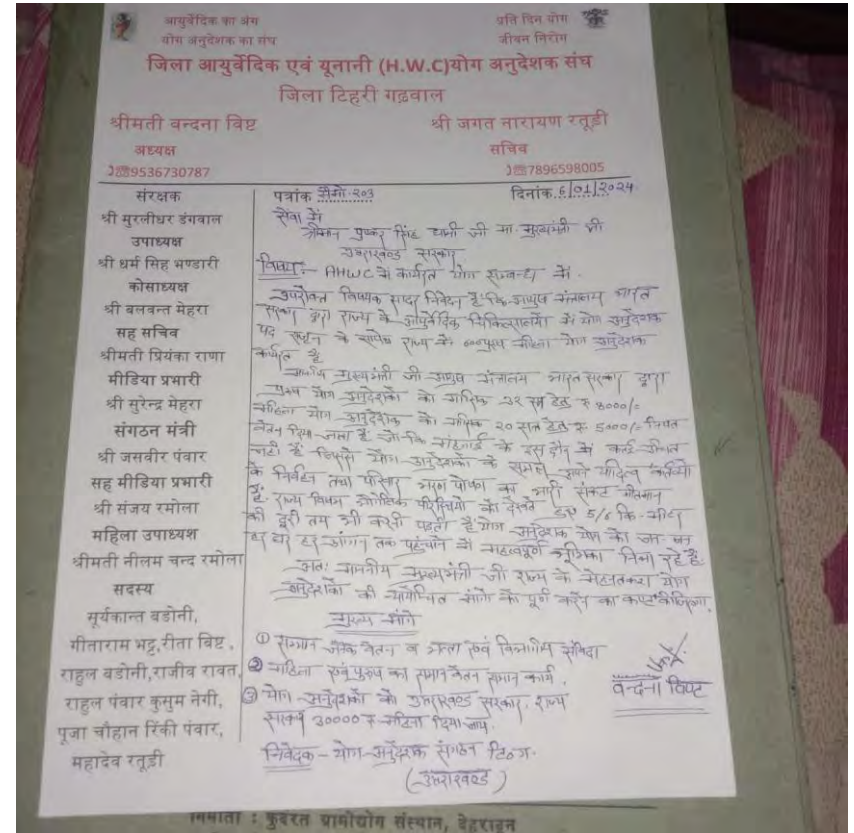 आयुर्वेदिक का अंग
योग अनुदेशक का संघ
प्रति दिन योग
जीवन निरोग
जिला आयुर्वेदिक एवं यूनानी (H.W.C)योग अनुदेशक संघ
जिला टिहरी गढवाल
श्रीमती वन्दना विष्ट
अध्यक्ष
9536730787
श्री जगत नारायण रतूडी
सचिव
7896598005
संरक्षक
श्री मुरलीधर डंगवाल
उपाध्यक्ष
श्री धर्म सिह भण्डारी
कोसाध्यक्ष
श्री बलवन्त मेहरा
सह सचिव
श्रीमती प्रियंका राणा
मीडिया प्रभारी
श्री सुरेन्द्र मेहरा
संगठन मंत्री
श्री जसवीर पंवार
सह मीडिया प्रभारी
श्री संजय रमोला
महिला उपाध्यश
श्रीमती नीलम चन्द रमोला
सदस्य
सूर्यकान्त बडोनी,
गीताराम भट्ट,रीता विष्ट,
राहुल बडोनी,राजीव रावत,
राहुल पंवार कुसुम नेगी,
पूजा चौहान रिंकी पंवार,
महादेव रतूडी
पत्रांक मेमो-203
दिनांक 6/01/2024
सेवा में
श्रीमान पुष्कर सिंह धामी जी मा. मुख्यमंत्री जी
उत्तराखण्ड सरकार
विषय:- AHWC में कार्यरत योग सम्बन्ध में.
उपरोक्त विषयक सादर निवेदन है कि आयुष मंत्रालय भारत
सरकार द्वारा राज्य के आयुर्वेदिक चिकित्सालयों में योग अनुदेशक
पद सृजन के सापेक्ष राज्य में महिला योग अनुदेशक
कार्यरत है
माननीय मुख्यमंत्री जी आयुष मंत्रालय भारत सरकार द्वारा
पुरुष योग अनुदेशकों को मासिक 32 रु 8000/=
महिला योग अनुदेशक को मासिक 20 रु 5000/= नियत
वेतन दिया जाता है जो कि मंहगाई के इस दौर में
नही है जिससे योग अनुदेशकों के समक्ष अपने
के निर्वहन तथा परिवार भरण पोषण का भारी संकट
है. राज्य विषम परिस्थियों को देखते हुए 5/6 कि. मीटर
की दूरी तय भी करनी पड़ती है योग अनुदेशक योग को जन जन
हर घर हर आंगन तक पहुंचाने में महत्वपूर्ण भूमिका निभा रहे है.
अतः माननीय मुख्यमंत्री जी राज्य के मेहनतकश योग
अनुदेशकों की मांगो को पूर्ण करने का कष्ट कीजिएगा.
मुख्य मांगे
① सम्मान जनक वेतन व भत्ता एवं विभागीय संविदा
② महिला एवं पुरुष का समान वेतन समान कार्य.
③ योग अनुदेशकों को उत्तराखण्ड सरकार. राज्य
30000 रु दिया जाय.
वन्दना विष्ट
निवेदक - योग अनुदेशक संगठन टि०ग०
(उत्तराखण्ड)
निर्माता : कुदरत ग्रामोद्योग संस्थान, देहरादून